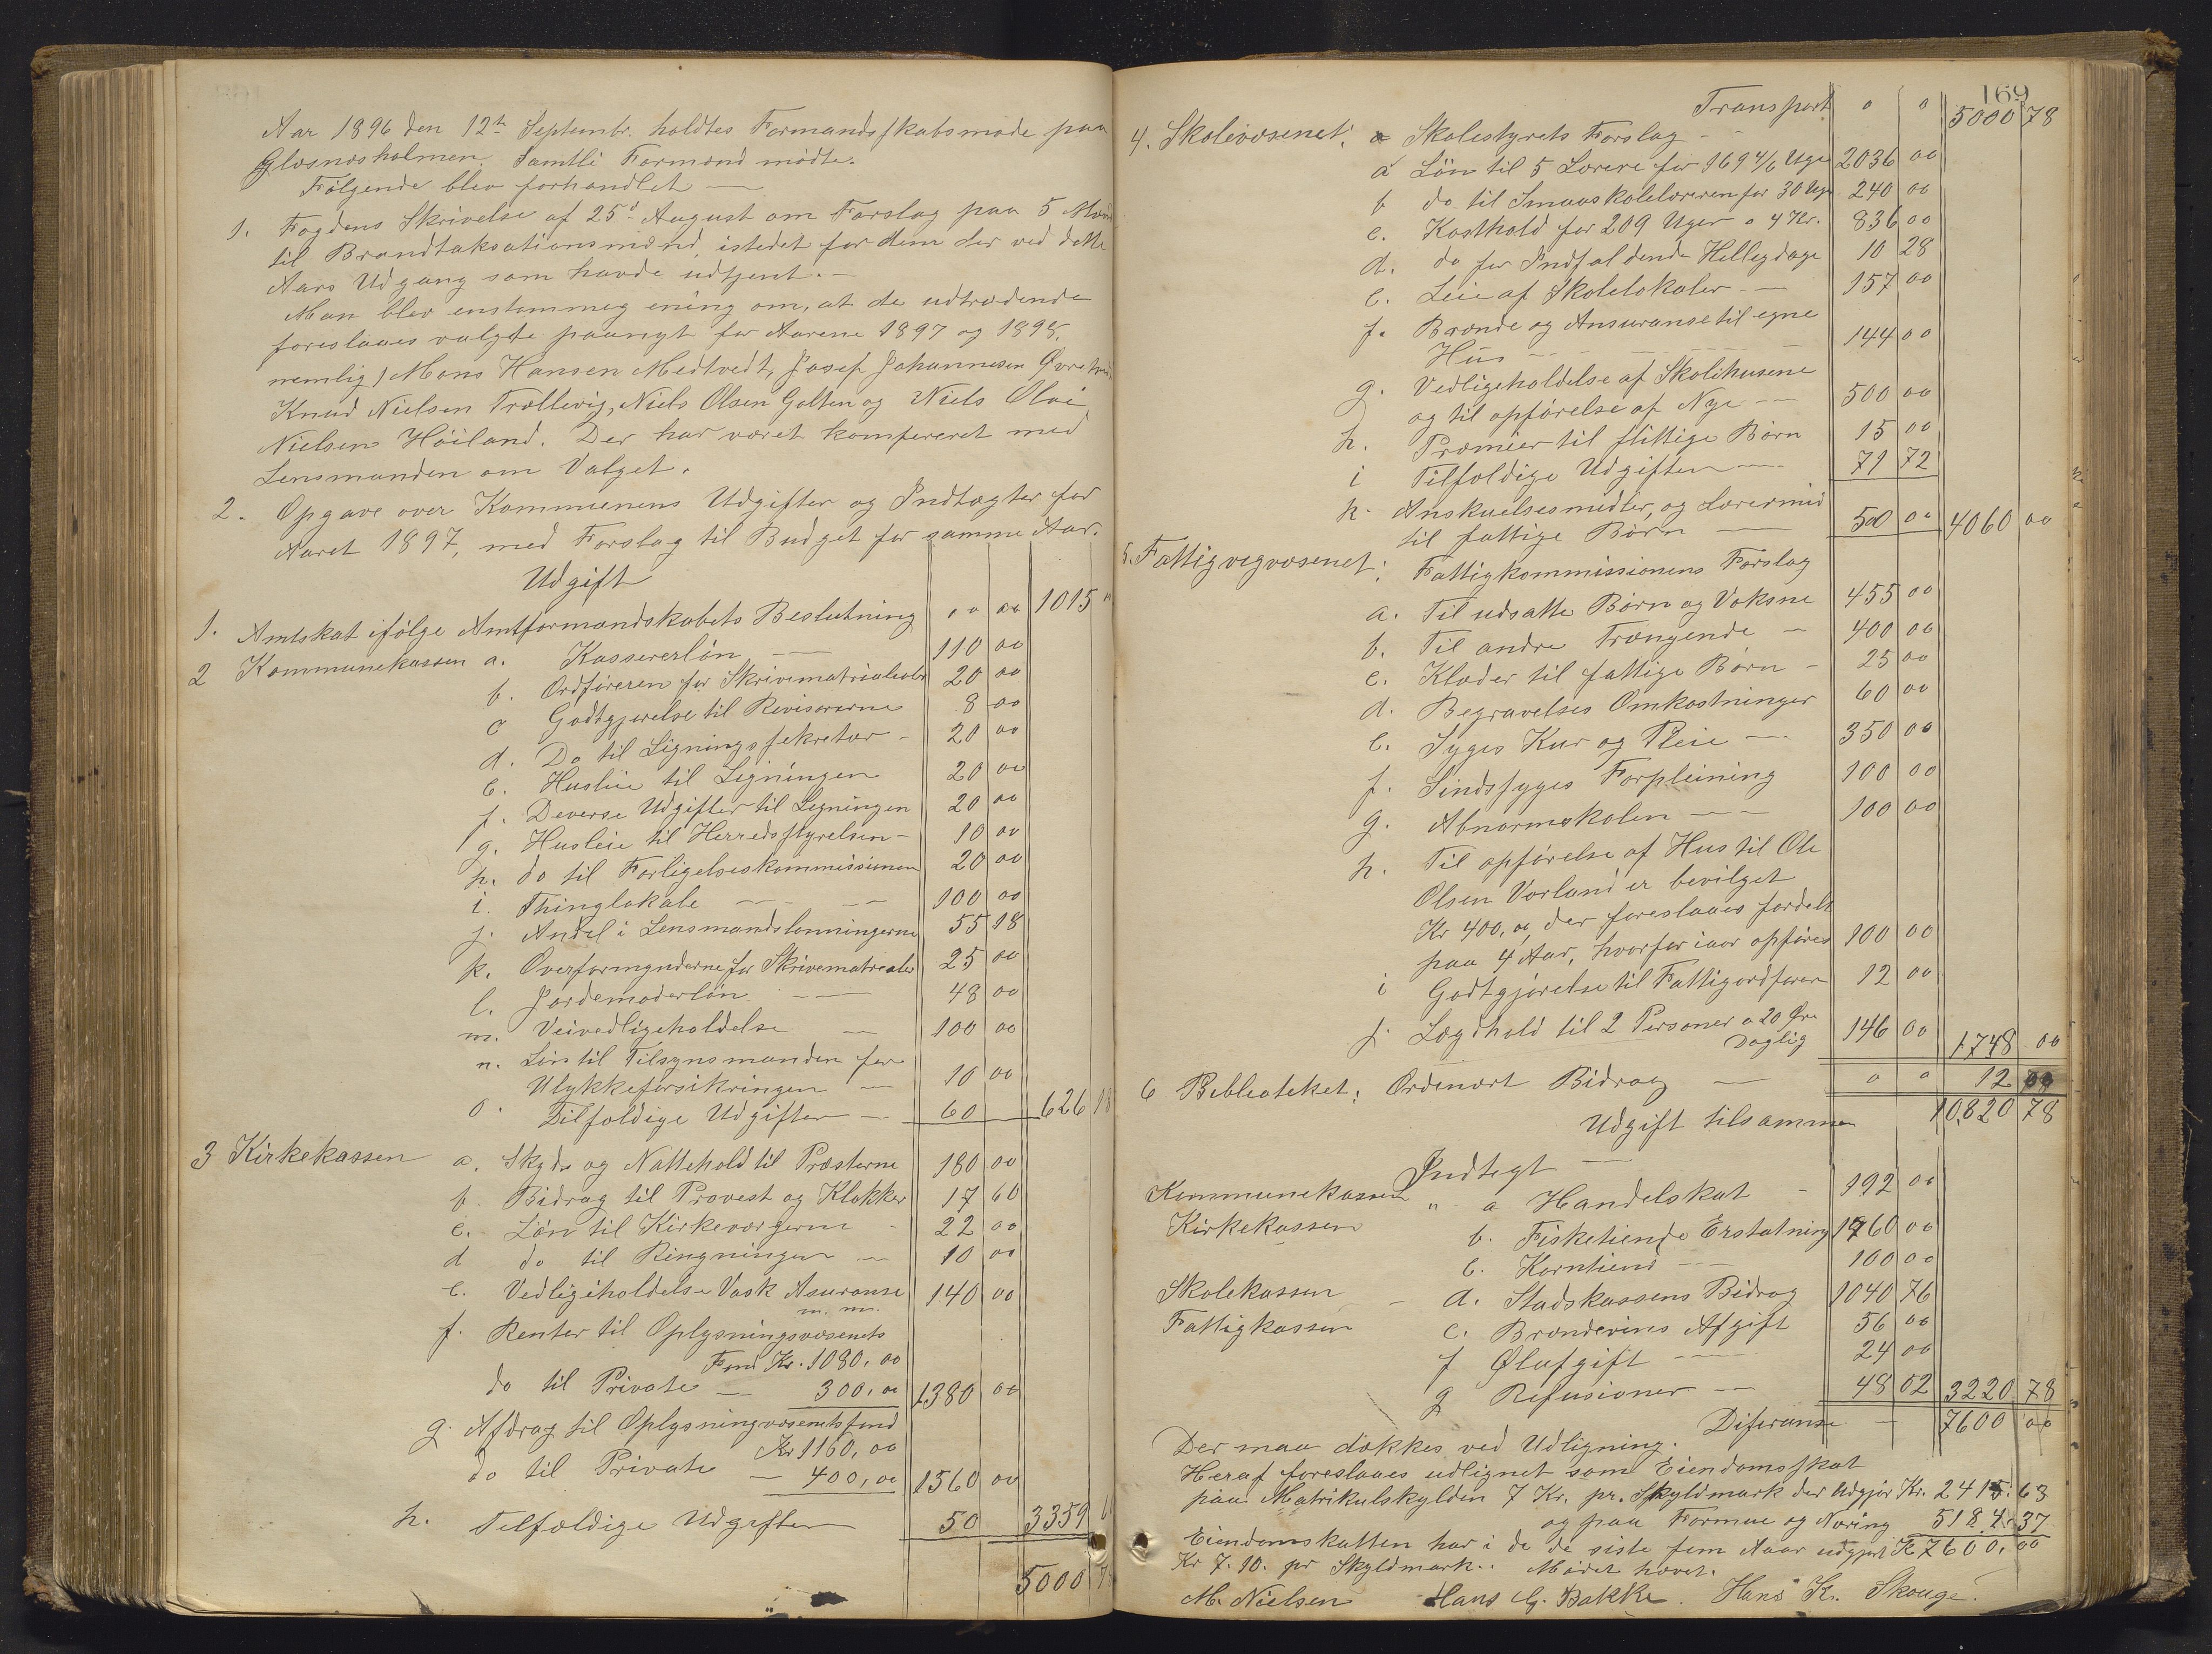 Aar 1896 den 12te Septembr. holdtes Formandsskabsmøde paa
Glæsnæsholmen. Samtli Formænd mødte.
Følgende blev forhandlet —
1. Fogdens Skrivelse af 25de August om Forslag paa 5 Mænd
til Brandtaksationsmænd, istedet for dem der ved dette
Aars Udgang som havde udtjent. —
Man blev enstemmeg ening om, at de udtrædende
foreslaaes valgte paanyt for Aarene 1897 og 1898.
nemlig) Mons Hansen Medtvedt, Josef Johannesen
Knud Nielsen Trællevig, Niels Olsen Golten og Niels Olai
Nielsen Höiland. Der har været komfereret med
Lensmanden om Valget.
2. Opgave over Kommunens Udgifter og Indtægter for
Aaret 1897, med Forslag til Budget for samme Aar.
Udgift
1. Amtskat ifölge Amtformandskabets Beslutning " " 00 1015 "
2 Kommunekassen a. Kassererlön — 110 00
b. Ordföreren for Skrivematrialer 20 00
c Godtgjørelse til Revisorerne 8 00
d. Do til Ligningssekretær - 20 00
e. Husleie til Ligningen 20 00
f. Deverse Udgifter til Ligningen 20 00
g. Husleie til Herredsstyrelsen - 10 00
h. do til Forligelseskommissionen 20 00
i. Thinglokale — — 100 00
j. Andel i Lensmandslønningerne 55 18
k. Overformynderne for Skrivematrealer 25 00
l. Jordemoderlön — 48 00
m. Veivedligeholdelse — 100 00
n. Lön til Tilsynsmanden for
Ulykkeforsikringen — 10 00
o. Tilfældige Udgifter — 60 626 18
3 Kirkekassen a. Skyds og Nattehold til Præsterne 180 00
b. Bidrag til Provest og Klokker 17 60
c. Lön til Kirkeværgerne - 22 00
d do til Ringningen — 10 00
e. Vedligeholdelse Vask Asuranse 140 00
m. m.
f. Renter til Oplysningsvæsenets
Fond Kr. 1080,00
do til Private — 300,00 1380 00
g. Afdrag til Oplysningvæsenetsfond
Kr 1160,00
do til Private — 400,00 1560 00
h. Tilfældige Udgifter 50 3359
5000
169
Transport " " 5000 78
4. Skolevæsenet: a Skolestyrets Forslag -
a Lön til 5 Lærere for 169 4/6 Uge 2036 00
b do til Smaaskolelæreren for 30 Uge 240 00
c. Kosthold for 209 Uger a 4 Kr. 836 00
d. do for Indfaldende Helligdage 10 28
e. Leie af Skolelokaler — 157 00
f. Brænde og Ansuranse til egne
Hus — 144 00
g. Vedligeholdelse af Skolehusene
og til opförelse af Nye — 500 00
h. Præmier til flittige Börn 15 00
i Tilfældige Udgifter — 71 72
k. Anskuelsesmidler, og Læremid
til fattige Börn — 50 00 4060 00
5. Fattigvegvæsenet: Fattigkommissionens Forslag
a. Til udsatte Börn og Voksne 455 00
b. Til andre Trængende - 400 00
c. Klæder til fattige Börn - 25 00
d. Begravelses Omkostninger 60 00
e. Syges Kur og Pleie — 350 00
f. Sindssyges Forpleining 100 00
g. Abnormskolen — 100 00
h. Til opförelse af Hus til Ole
Olsen Vorland er bevilget
Kr 400,00, der foreslaaes fordelt
paa 4 Aar, hvorfor iaar opføres 100 00
i Godtgjörelse til Fattigordfører 12 00
j. Lægdhold til 2 Personer a 20 Øre
Daglig 146 00 1748 00
6 Bebleoteket: Ordenært Bidrag — " " 12 00
Udgift tilsammen 10,820 78
Indtegt —
Kommunekassen " a Handelskat - 192 00
Kirkekassen b. Fisketiende Erstatning 1760 00
c. Korntiend — 100 00
Skolekassen - d. Stadskassens Bidrag 1040 76
Fattigkassen e. Brændevins Afgift 56 00
f Ølafgift — 24 00
g Refusioner — 48 02 3220 78
Diferanse — 7600 00
Der maa dækkes ved Udligning.
Heraf foreslaaes udlignet som Eiendomsskat
paa Matrikulskylden 7 Kr. pr. Skyldmark der Udgjör Kr. 2415.63
og paa Formue og Næring 5184.37
Eiendomskatten har i de de siste fem Aaar udgjort Kr 7600,00
Kr 7.10. pr Skyldmark.. Mødet hævet.
M. Nielsen Hans G. Bakke. Hans K. Skouge.